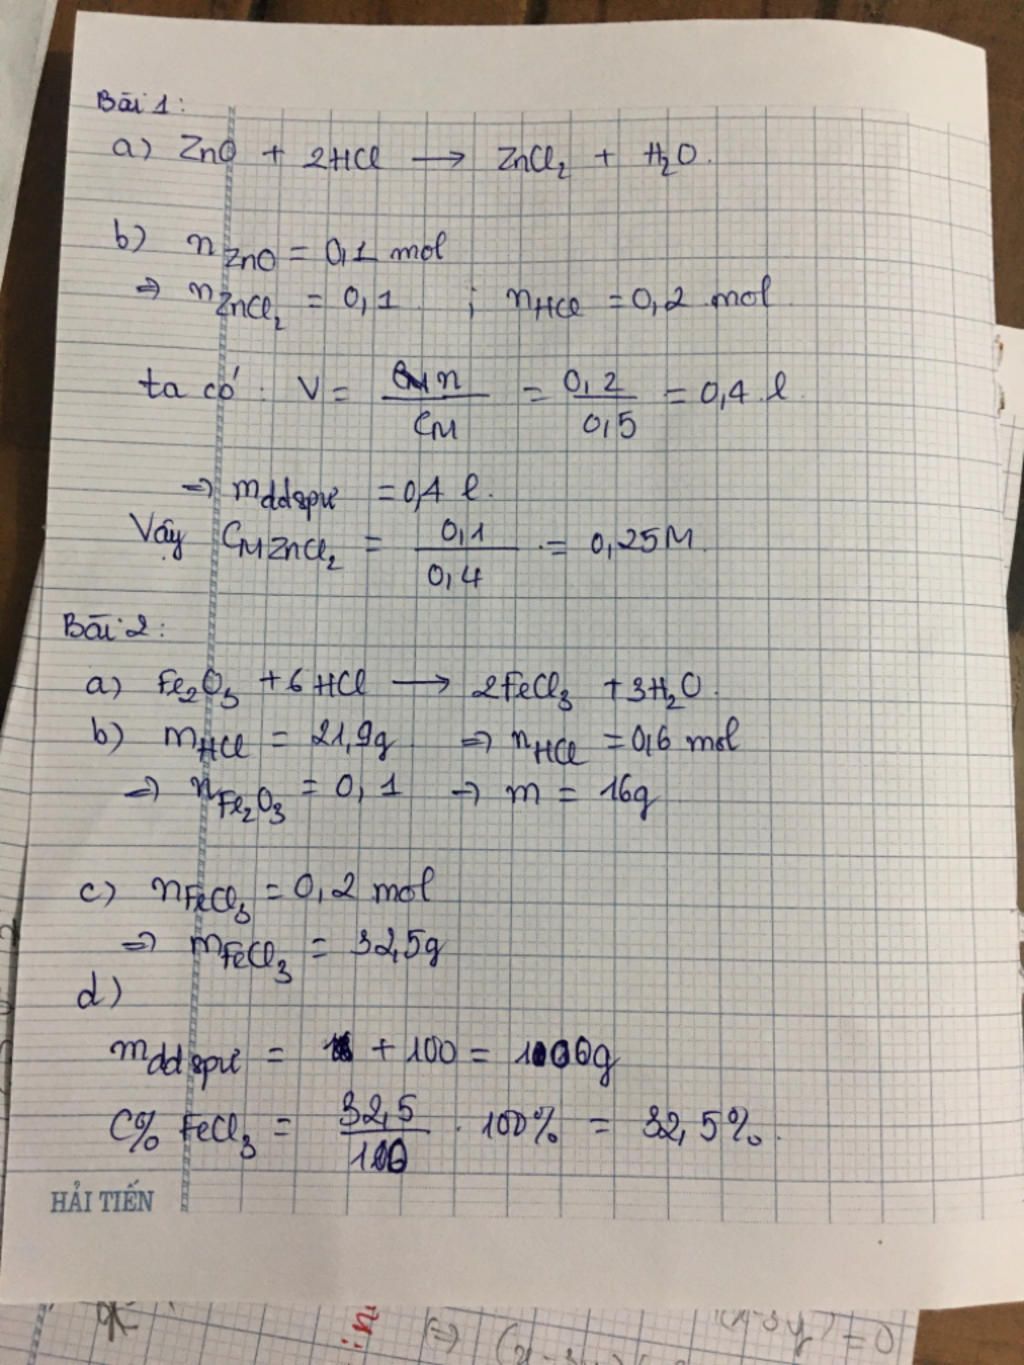 Bài 1:
a) ZnO + 2HCl → ZnCl₂ + H₂O.
b) n ZnO = 0,1 mol
⇒ n ZnCl₂ = 0,1 ; n HCl = 0,2 mol
ta có: V = n / CM = 0,2 / 0,5 = 0,4 l
⇒ m ddspư = 0,4 l.
Vậy CM ZnCl₂ = 0,1 / 0,4 = 0,25M.
Bài 2:
a) Fe₂O₃ + 6HCl → 2FeCl₃ + 3H₂O.
b) m HCl = 21,9g ⇒ n HCl = 0,6 mol
⇒ n Fe₂O₃ = 0,1 ⇒ m = 16g
c) n FeCl₃ = 0,2 mol
⇒ m FeCl₃ = 32,5g
d)
m ddspư = + 100 = g
C% FeCl₃ = 32,5 / . 100% = 32,5%.
HẢI TIẾN
= 0